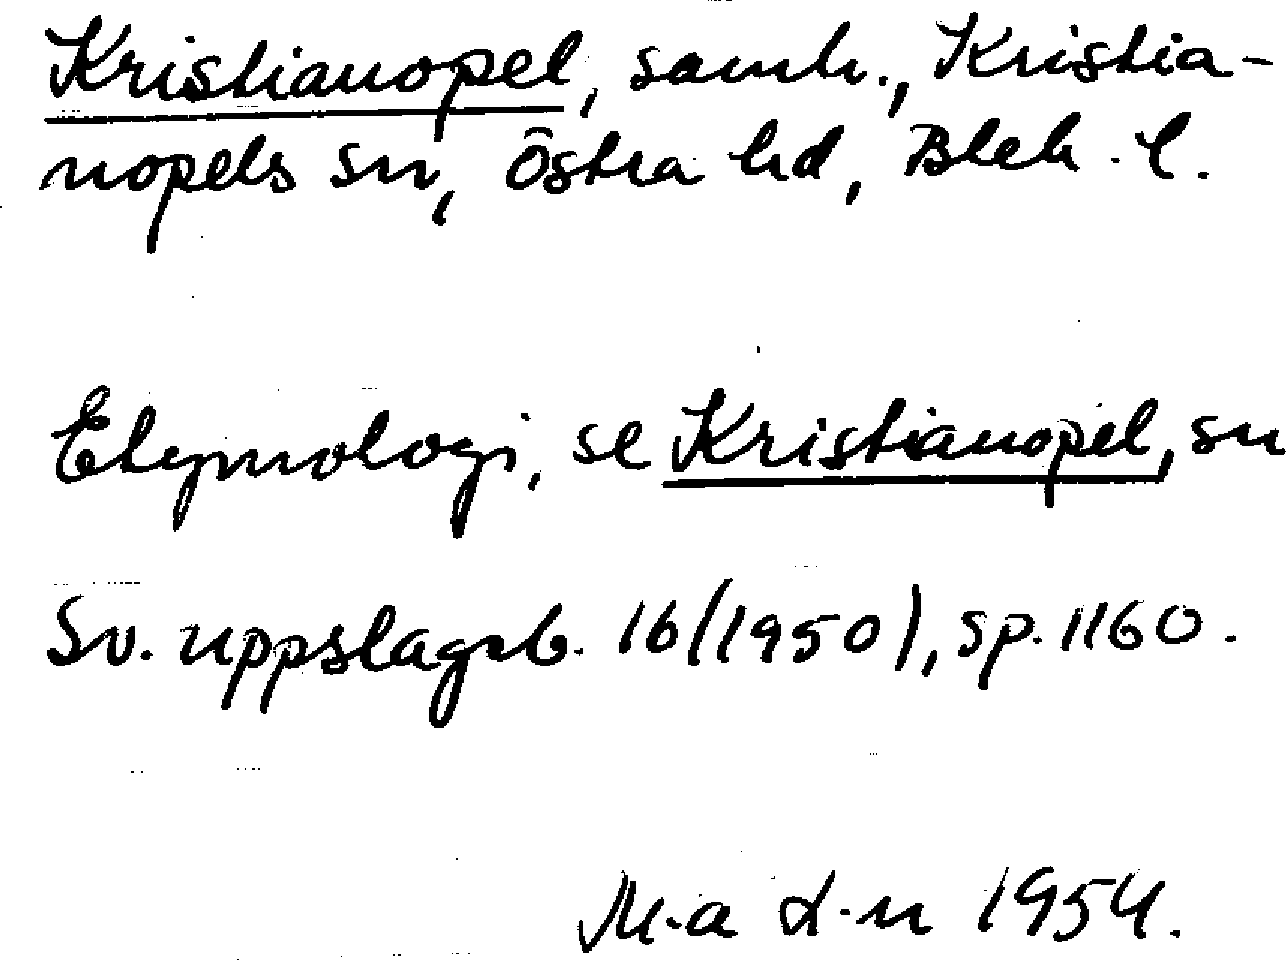 Kristianopel, samh., Kristia-
nopels sn, Östra hd, Blek. l.
Etymologi, se Kristianopel, sn
Sv. uppslagsb. 16 (1950), sp. 1160.
M-a 1954.